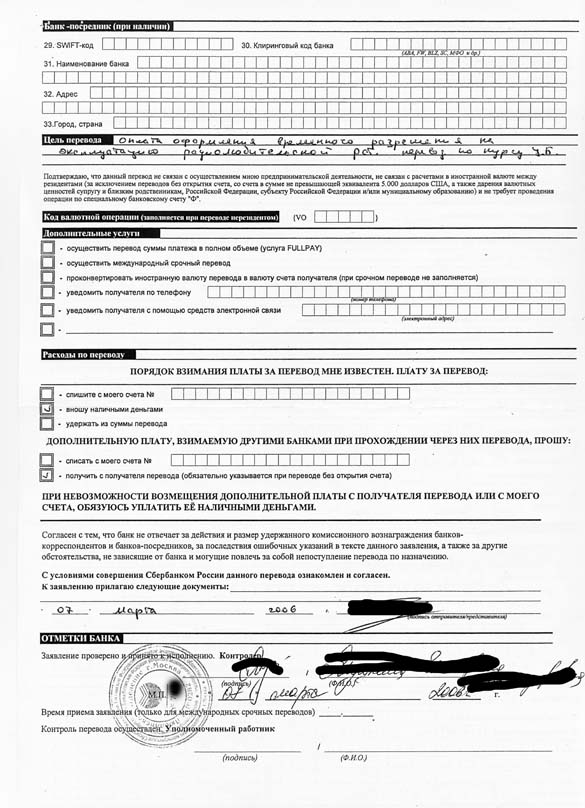 Банк -посредник (при наличии)
29. SWIFT-код 30. Клиринговый код банка
(ABA, FW, BLZ, SC, МФО и др.)
31. Наименование банка
32. Адрес
33.Город, страна
Цель перевода Оплата оформления временного разрешения на
эксплуатацию радиолюбительской р/ст. перевод по курсу Ц.Б.
Подтверждаю, что данный перевод не связан с осуществлением мною предпринимательской деятельности, не связан с расчетами в иностранной валюте между
резидентами (за исключением переводов без открытия счета, со счета в сумме не превышающей эквивалента 5.000 долларов США, а также дарения валютных
ценностей супругу и близким родственникам, Российской Федерации, субъекту Российской Федерации и/или муниципальному образованию) и не требует проведения
операции по специальному банковскому счету "Ф".
Код валютной операции (заполняется при переводе резидентом) (VO )
Дополнительные услуги
- осуществить перевод суммы платежа в полном объеме (услуга FULLPAY)
- осуществить международный срочный перевод
- проконвертировать иностранную валюту перевода в валюту счета получателя (при срочном переводе не заполняется)
- уведомить получателя по телефону
(номер телефона)
- уведомить получателя с помощью средств электронной связи
(электронный адрес)
-
Расходы по переводу
ПОРЯДОК ВЗИМАНИЯ ПЛАТЫ ЗА ПЕРЕВОД МНЕ ИЗВЕСТЕН. ПЛАТУ ЗА ПЕРЕВОД:
- спишите с моего счета №
- вношу наличными деньгами
- удержать из суммы перевода
ДОПОЛНИТЕЛЬНУЮ ПЛАТУ, ВЗИМАЕМУЮ ДРУГИМИ БАНКАМИ ПРИ ПРОХОЖДЕНИИ ЧЕРЕЗ НИХ ПЕРЕВОДА, ПРОШУ:
- списать с моего счета №
- получить с получателя перевода (обязательно указывается при переводе без открытия счета)
ПРИ НЕВОЗМОЖНОСТИ ВОЗМЕЩЕНИЯ ДОПОЛНИТЕЛЬНОЙ ПЛАТЫ С ПОЛУЧАТЕЛЯ ПЕРЕВОДА ИЛИ С МОЕГО
СЧЕТА, ОБЯЗУЮСЬ УПЛАТИТЬ ЕЁ НАЛИЧНЫМИ ДЕНЬГАМИ.
Согласен с тем, что банк не отвечает за действия и размер удержанного комиссионного вознаграждения банков-
корреспондентов и банков-посредников, за последствия ошибочных указаний в тексте данного заявления, а также за другие
обстоятельства, не зависящие от банка и могущие повлечь за собой непоступление перевода по назначению.
С условиями совершения Сбербанком России данного перевода ознакомлен и согласен.
К заявлению прилагаю следующие документы:
07 марта 2006 г.
(подпись отправителя/представителя)
ОТМЕТКИ БАНКА
Заявление проверено и принято к исполнению. Контролер
(подпись) (Ф.И.О)
М.П. 07 марта 2006 г.
Время приема заявления (только для международных срочных переводов)
Контроль перевода осуществлен. Уполномоченный работник
(подпись) (Ф.И.О.)